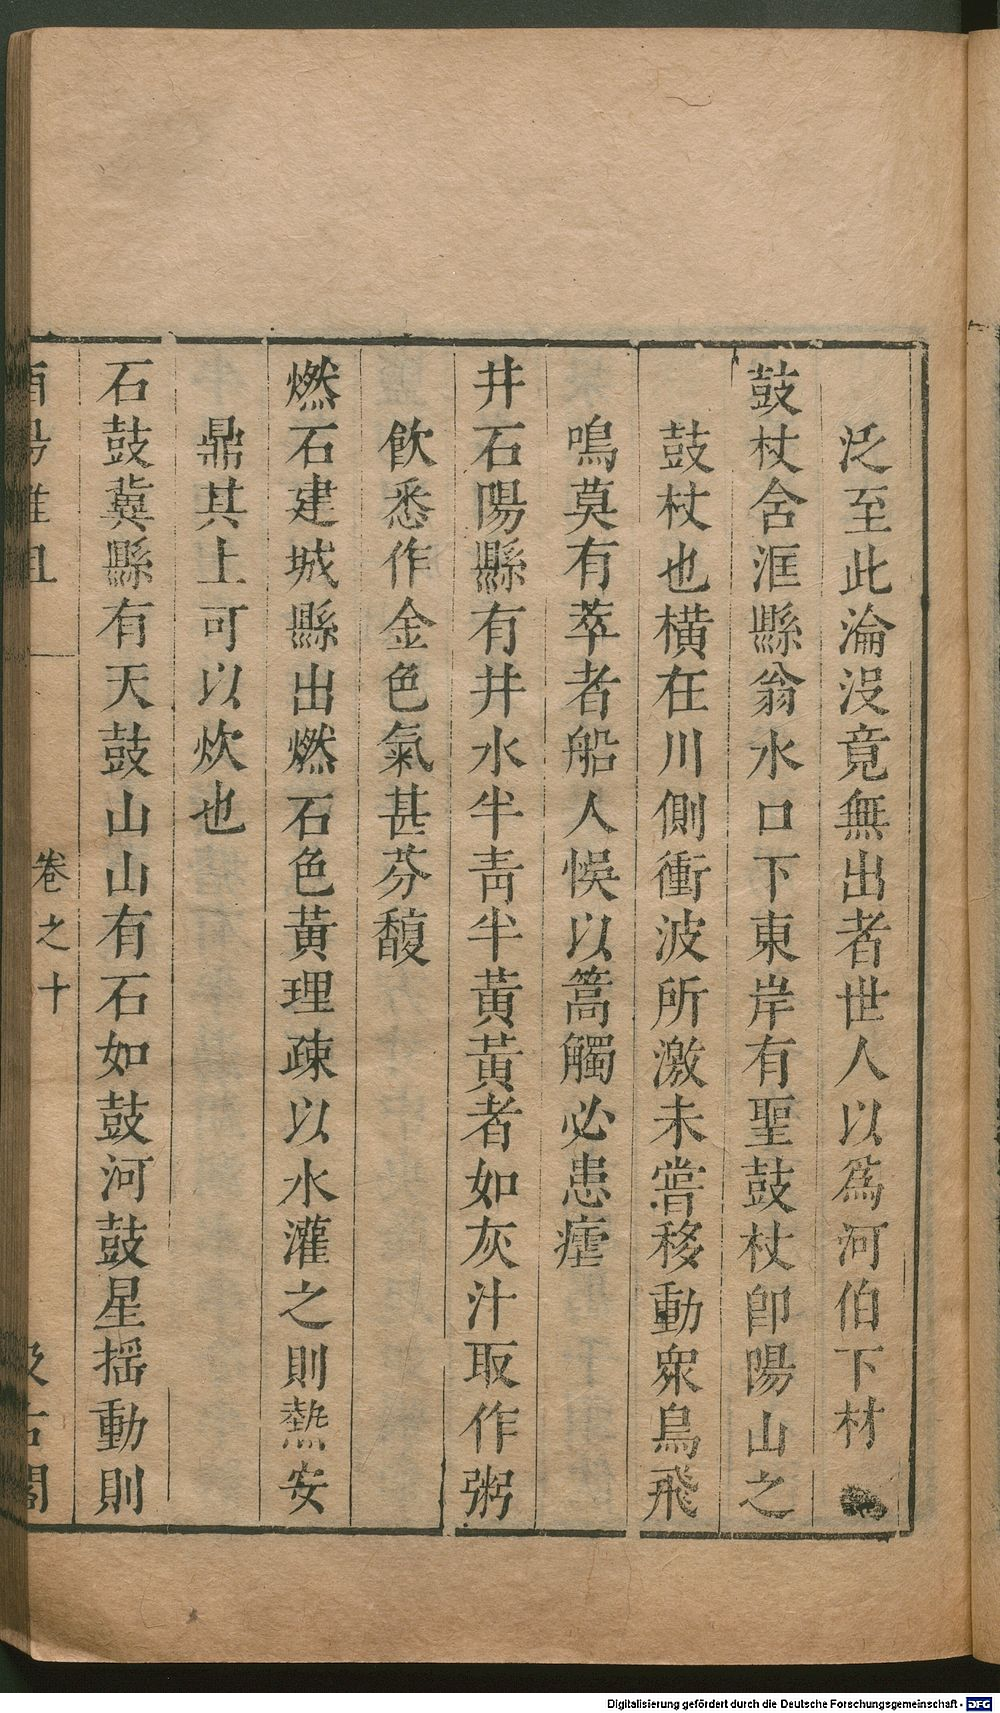 泛至此淪没竟無出者世人以為河伯下材
鼓杖含洭縣翁水口下東岸有聖鼓杖卽陽山之
鼓杖也橫在川側衝波所激未嘗移動衆鳥飛
鳴莫有萃者船人悞以篙觸必患瘧
井石陽縣有井水半靑半黃黃者如灰汁取作粥
飮悉作金色氣甚芬馥
燃石建城縣出燃石色黃理疎以水灌之則熱安
鼎其上可以炊也
石鼓冀縣有天鼓山山有石如鼓河鼓星搖動則
酉陽雜俎 卷之十 汲古閣
Digitalisierung gefördert durch die Deutsche Forschungsgemeinschaft - DFG